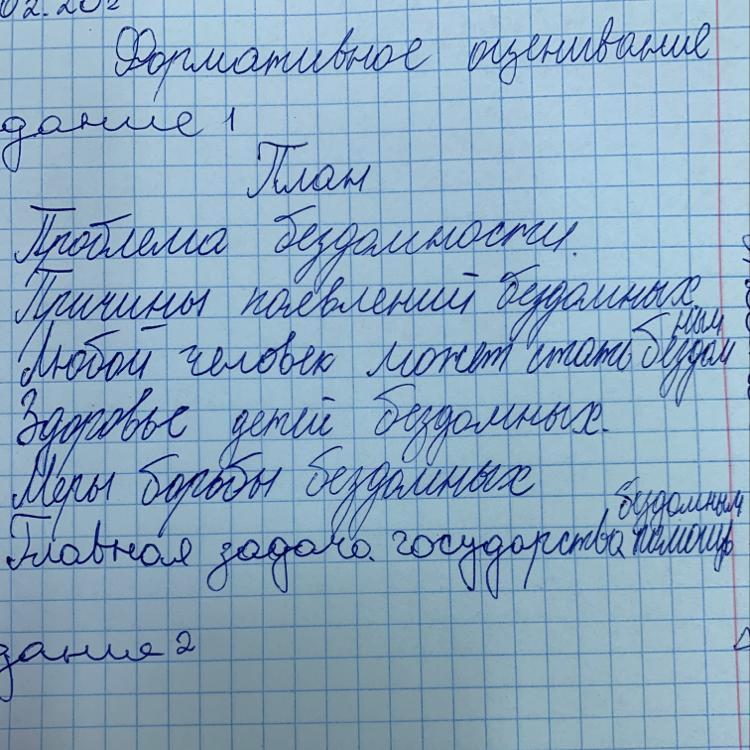 02.202
Формативное оценивание
дание 1
План
Проблема бездомности.
Причины появлений бездомных
Любой человек может стать бездомным
Здоровье детей бездомных.
Меры борьбы бездомных
Главная задача государства помощь бездомным
дание 2